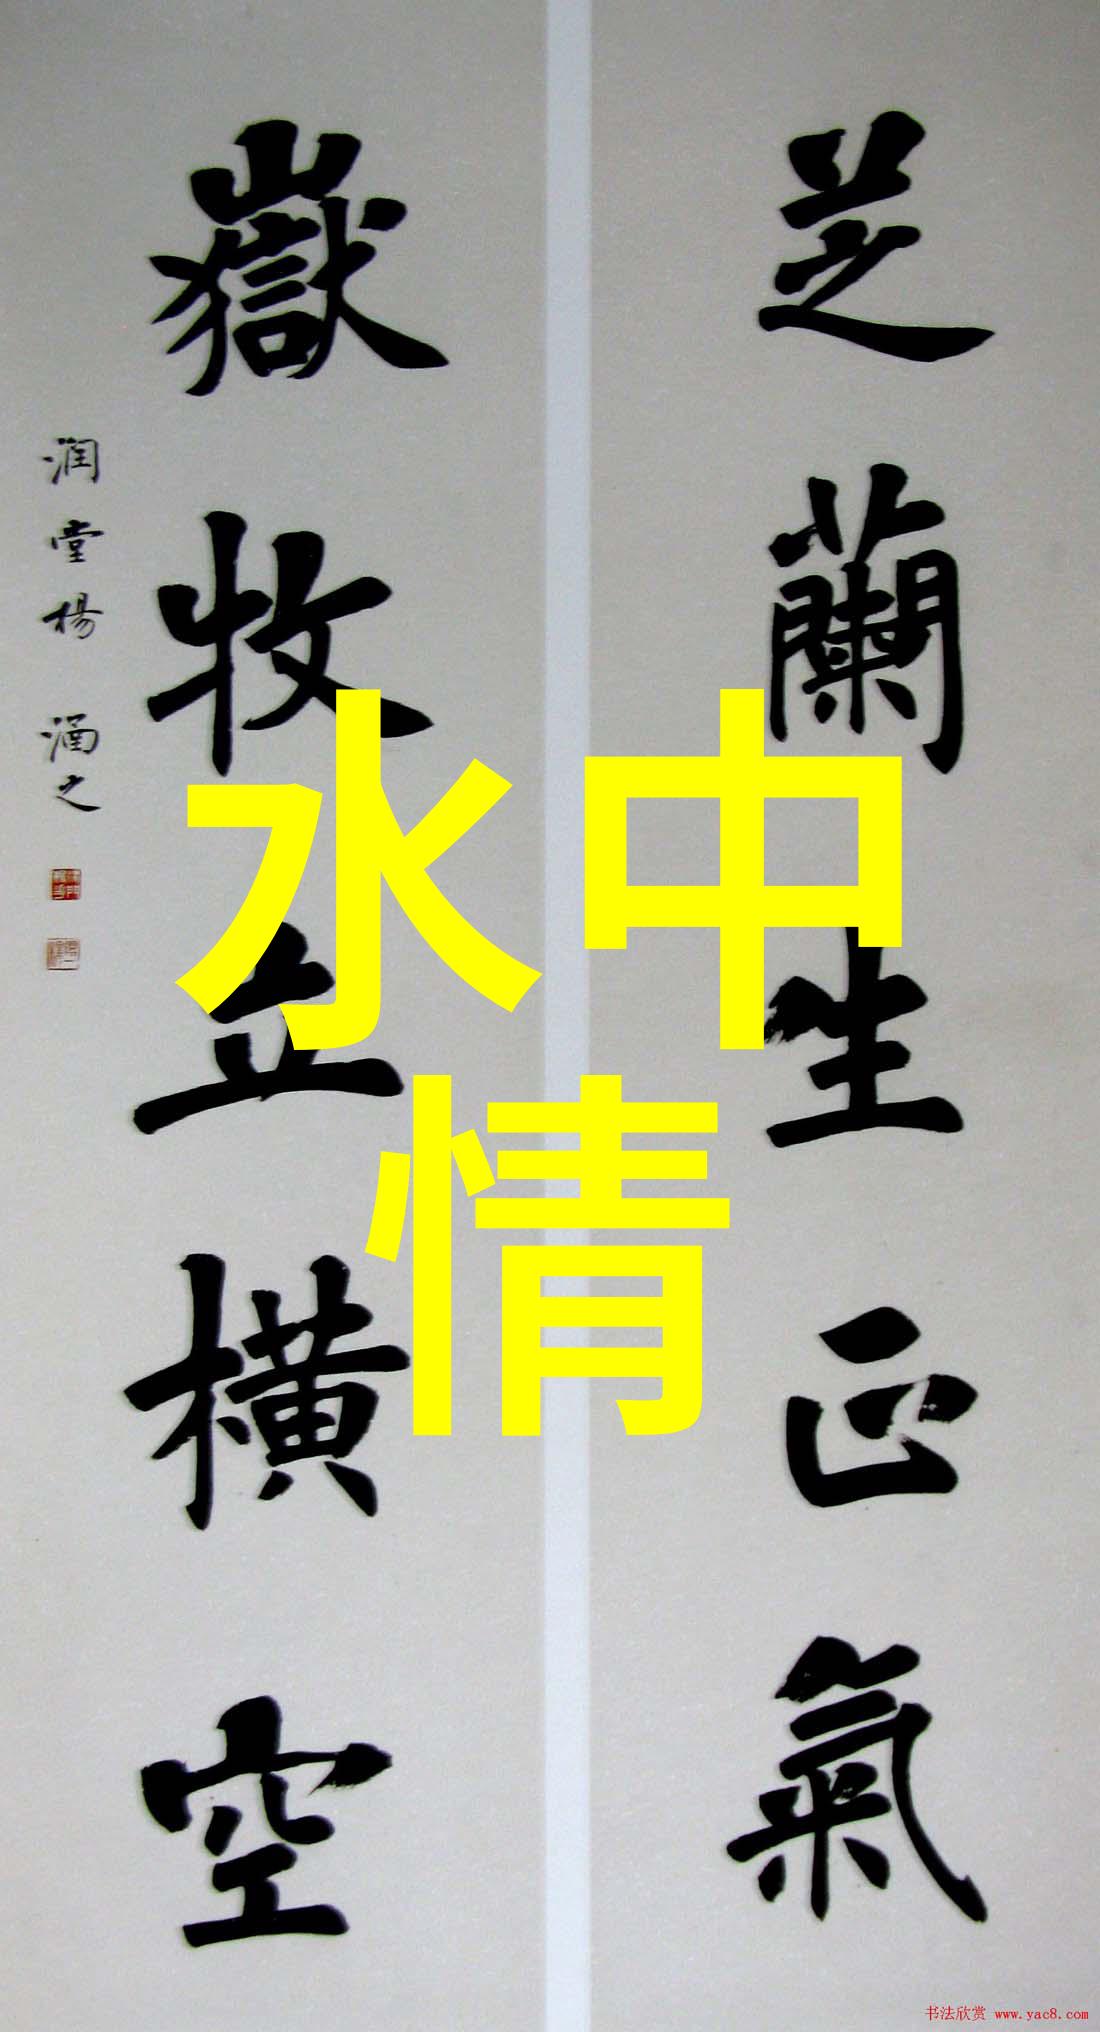 芝蘭生正氣
嶽牧立橫空
润堂楊涵之
水中
情
书法欣赏 www.yac8.com